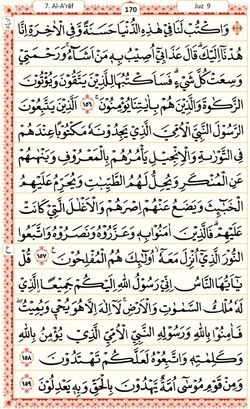 7. Al-A'rāf 170 Juz 9
وَاكْتُبْ لَنَا فِيْ هٰذِهِ الدُّنْيَا حَسَنَةً وَّفِى الْاٰخِرَةِ اِنَّا
هُدْنَآ اِلَيْكَ ۗقَالَ عَذَابِيْٓ اُصِيْبُ بِهٖ مَنْ اَشَاۤءُ ۚوَرَحْمَتِيْ
وَسِعَتْ كُلَّ شَيْءٍ ۗفَسَاَكْتُبُهَا لِلَّذِيْنَ يَتَّقُوْنَ وَيُؤْتُوْنَ
الزَّكٰوةَ وَالَّذِيْنَ هُمْ بِاٰيٰتِنَا يُؤْمِنُوْنَ ١٥٦ اَلَّذِيْنَ يَتَّبِعُوْنَ
الرَّسُوْلَ النَّبِيَّ الْاُمِّيَّ الَّذِيْ يَجِدُوْنَهٗ مَكْتُوْبًا عِنْدَهُمْ
فِى التَّوْرٰىةِ وَالْاِنْجِيْلِ يَأْمُرُهُمْ بِالْمَعْرُوْفِ وَيَنْهٰىهُمْ
عَنِ الْمُنْكَرِ وَيُحِلُّ لَهُمُ الطَّيِّبٰتِ وَيُحَرِّمُ عَلَيْهِمُ
الْخَبٰۤىِٕثَ وَيَضَعُ عَنْهُمْ اِصْرَهُمْ وَالْاَغْلٰلَ الَّتِيْ كَانَتْ
عَلَيْهِمْ ۗفَالَّذِيْنَ اٰمَنُوْا بِهٖ وَعَزَّرُوْهُ وَنَصَرُوْهُ وَاتَّبَعُوا
النُّوْرَ الَّذِيْٓ اُنْزِلَ مَعَهٗٓ ۙاُولٰۤىِٕكَ هُمُ الْمُفْلِحُوْنَ ١٥٧ قُلْ
يٰٓاَيُّهَا النَّاسُ اِنِّيْ رَسُوْلُ اللّٰهِ اِلَيْكُمْ جَمِيْعًا ۨالَّذِيْ
لَهٗ مُلْكُ السَّمٰوٰتِ وَالْاَرْضِۚ لَآ اِلٰهَ اِلَّا هُوَ يُحْيٖ وَيُمِيْتُۖ
فَاٰمِنُوْا بِاللّٰهِ وَرَسُوْلِهِ النَّبِيِّ الْاُمِّيِّ الَّذِيْ يُؤْمِنُ بِاللّٰهِ
وَكَلِمٰتِهٖ وَاتَّبِعُوْهُ لَعَلَّكُمْ تَهْتَدُوْنَ ١٥٨
وَمِنْ قَوْمِ مُوْسٰٓى اُمَّةٌ يَّهْدُوْنَ بِالْحَقِّ وَبِهٖ يَعْدِلُوْنَ ١٥٩